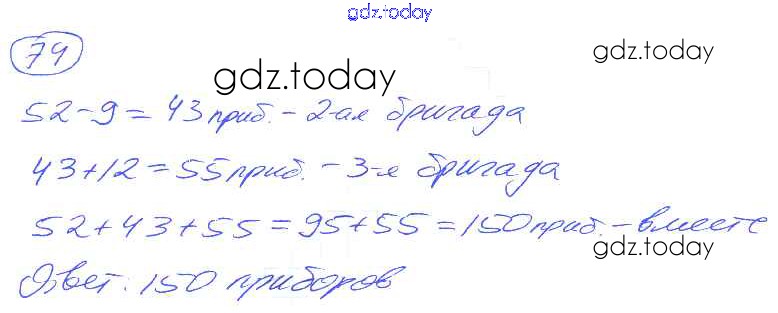 gdz.today
79
gdz.today
gdz.today
52-9=43 приб. - 2-ая бригада
43+12=55 приб. - 3-я бригада
52+43+55=95+55=150 приб. - вместе
gdz.today
Ответ: 150 приборов